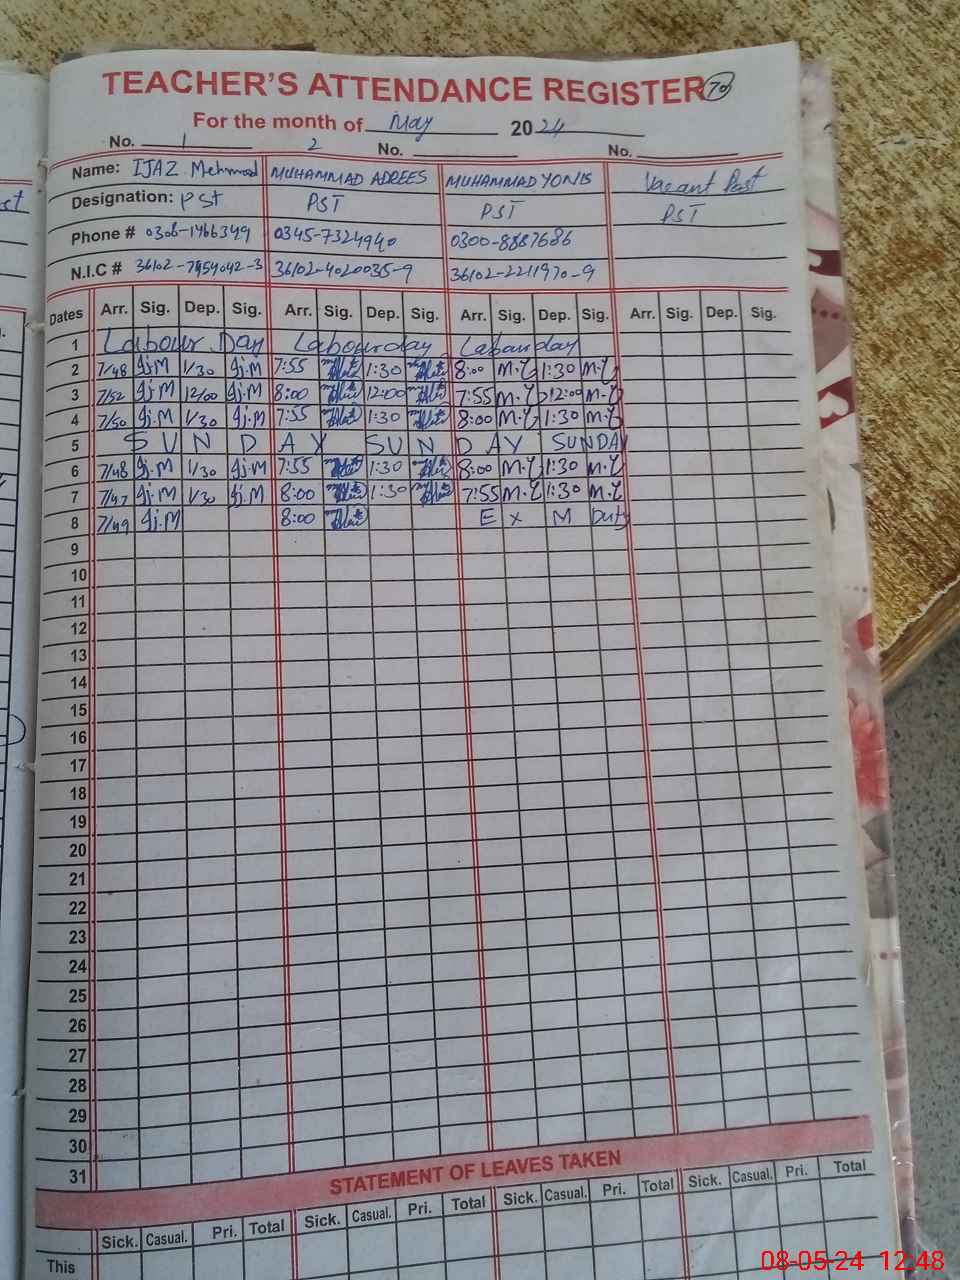 TEACHER'S ATTENDANCE REGISTER 70
For the month of May 2024
No. 1 2 No. No.
Name: IJAZ Mehmood MUHAMMAD ADREES MUHAMMAD YONIS Vacant Post
Designation: PST PST PST PST
Phone # 0306-1466349 0345-7324940 0300-8887686
N.I.C # 36102-7454042-3 36102-4020035-9 36102-2211970-9
Dates Arr. Sig. Dep. Sig. Arr. Sig. Dep. Sig. Arr. Sig. Dep. Sig. Arr. Sig. Dep. Sig.
1 Labour Day Labourday Labourday
2 7/48 Ij.M 1/30 Ij.M 7:55 1:30 8:00 M.Y 1:30 M.Y
3 7/52 Ij.M 12/00 Ij.M 8:00 12:00 7:55 M.Y 12:00 M.Y
4 7/50 Ij.M 1/30 Ij.M 7:55 1:30 8:00 M.Y 1:30 M.Y
5 SUNDAY SUNDAY SUNDAY
6 7/48 Ij.M 1/30 Ij.M 7:55 1:30 8:00 M.Y 1:30 M.Y
7 7/47 Ij.M 1/30 Ij.M 8:00 1:30 7:55 M.Y 1:30 M.Y
8 7/49 Ij.M 8:00 E x M Duty
9
10
11
12
13
14
15
16
17
18
19
20
21
22
23
24
25
26
27
28
29
30
31
STATEMENT OF LEAVES TAKEN
Sick. Casual. Pri. Total Sick. Casual. Pri. Total Sick. Casual. Pri. Total Sick. Casual. Pri. Total
This
08-05-24 12:48